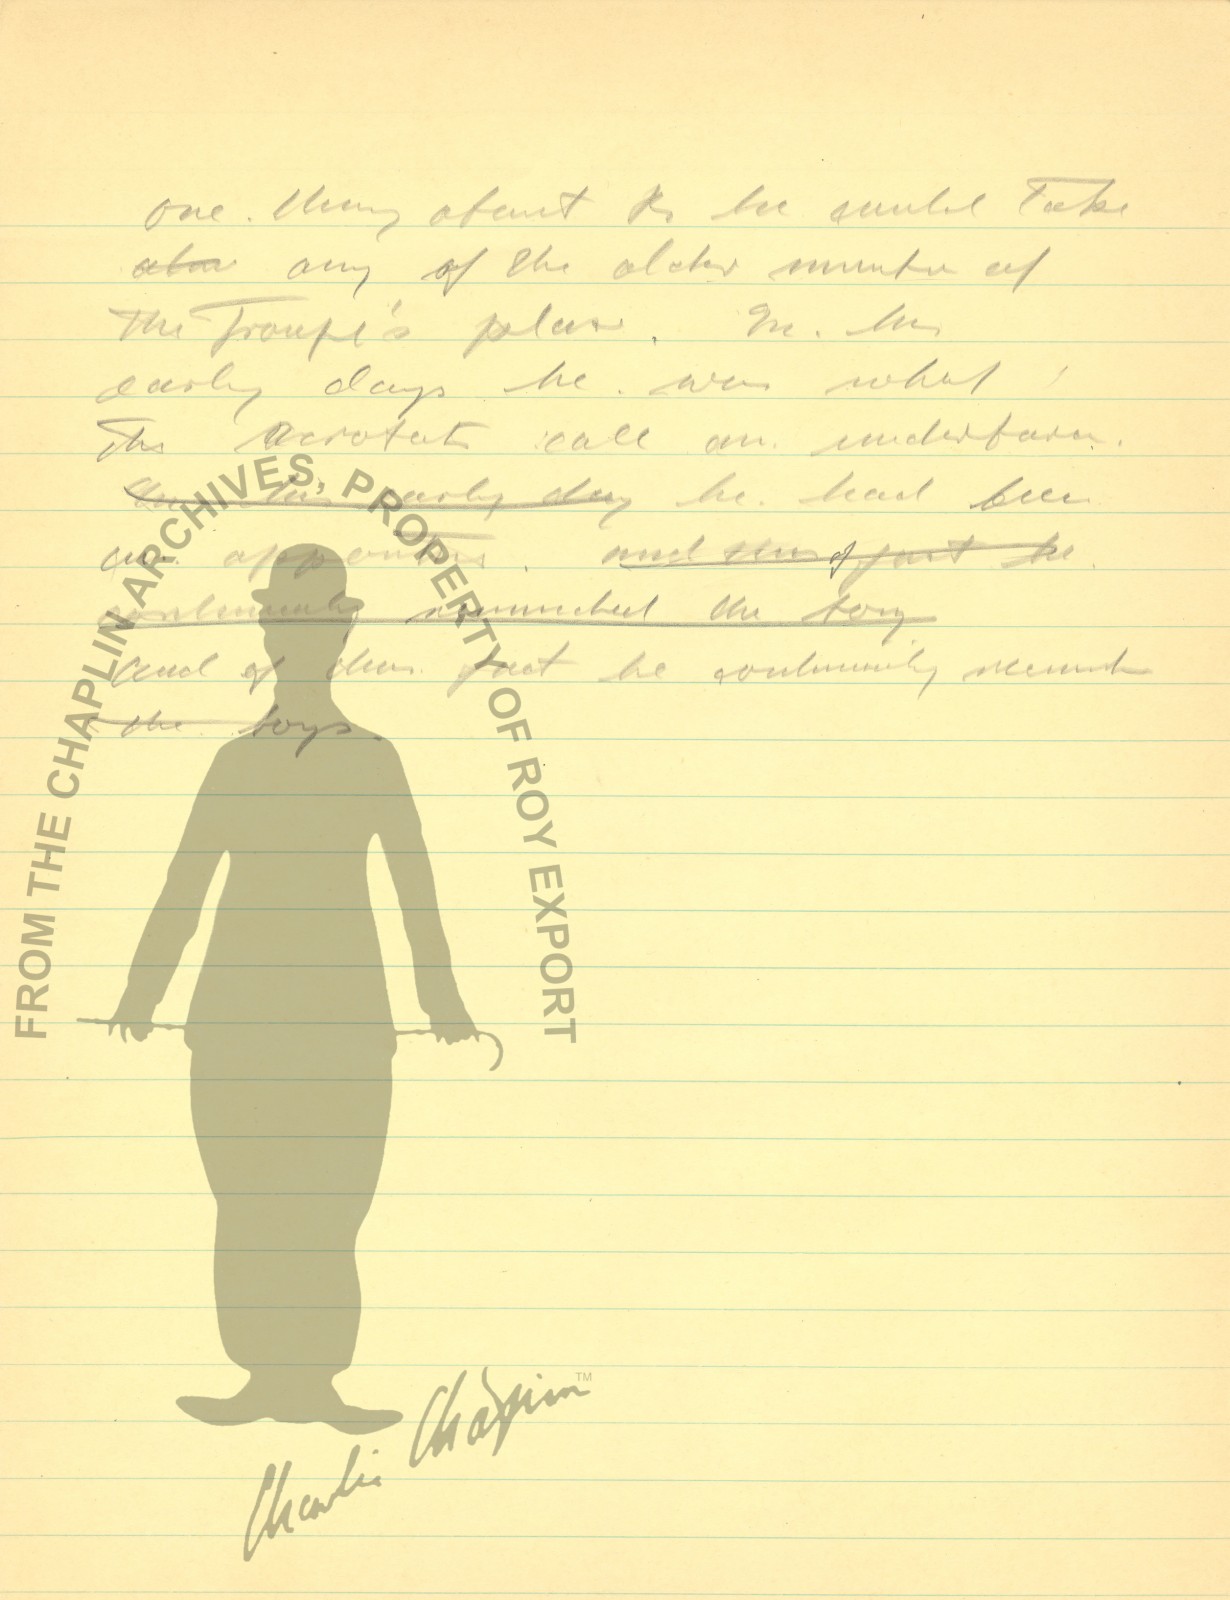 one. thing about K. he could Take
any of the older member of
The Troupe's place. In. his
early days he. was what
The Acrobats call an. underbearer.
In his early day he. had been
an. apprentice. and this of fact he.
continually reminded the boy
and of this. fact he continually
the boys.
FROM THE CHAPLIN ARCHIVES, PROPERTY OF ROY EXPORT
Charlie Chaplin™